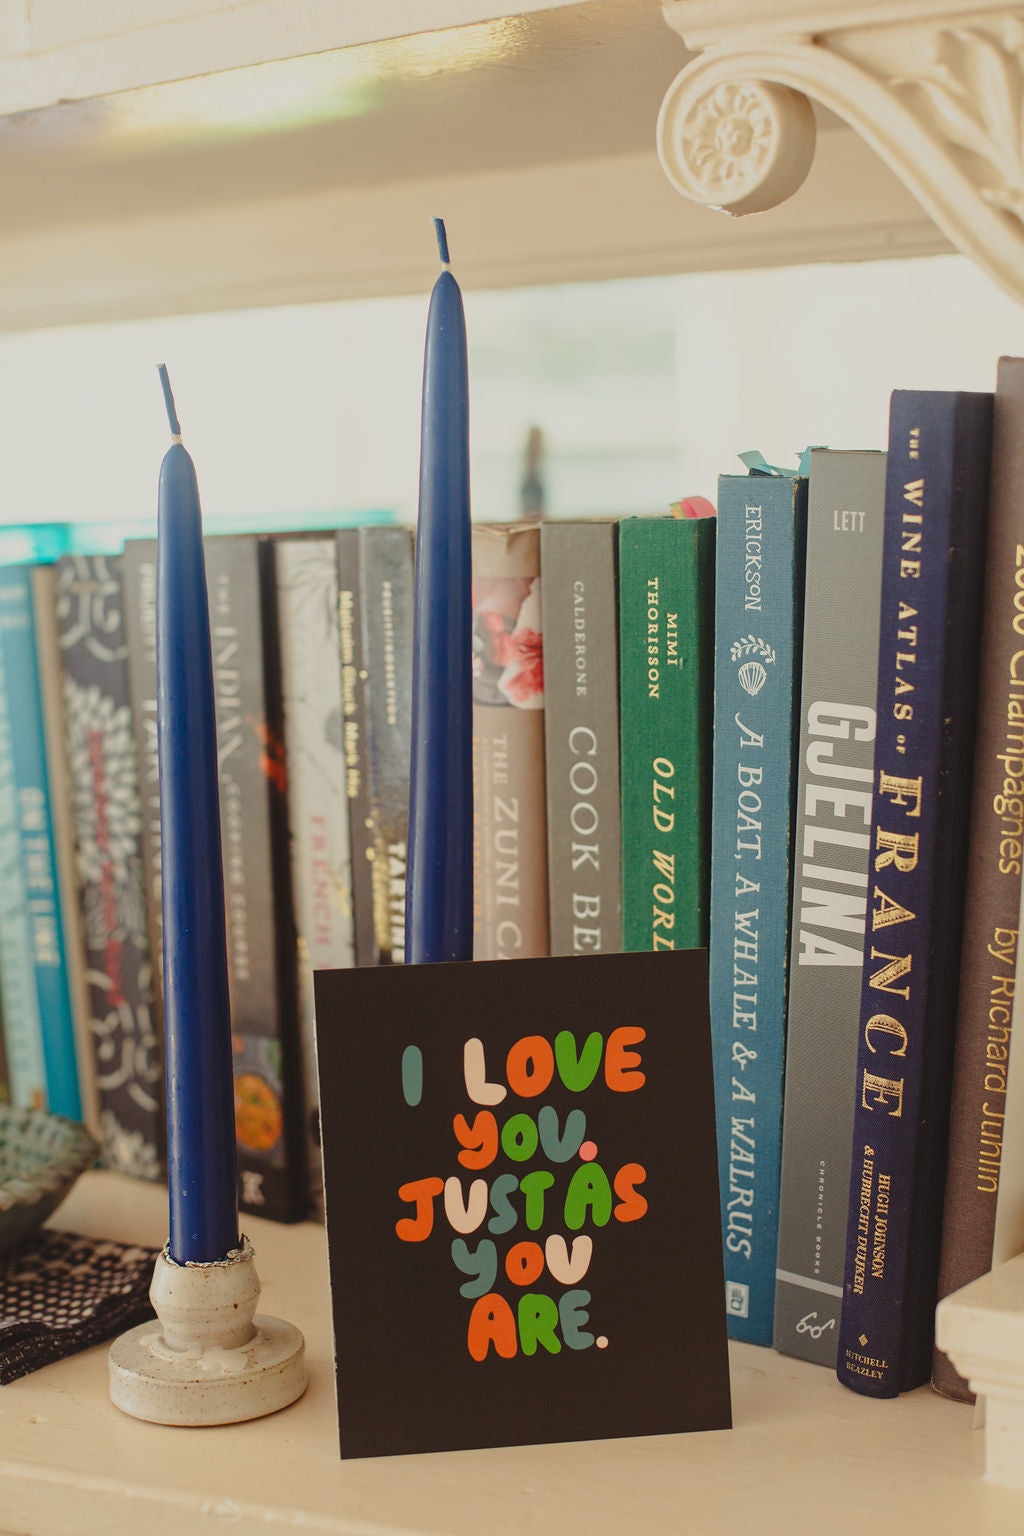 ON THE LINE
THE INDIAN COOKING COURSE
K
FRENCH
TARTINE
THE ZUNI CA
CALDERONE
COOK BE
MIMI
THORISSON
OLD WORL
ERICKSON
A BOAT, A WHALE & A WALRUS
LETT
GJELINA
CHRONICLE BOOKS
THE WINE ATLAS OF FRANCE
HUGH JOHNSON
& HUBRECHT DUIJKER
MITCHELL
BEAZLEY
2000 Champagnes by Richard Juhlin
I LOVE
YOU.
JUST AS
YOU
ARE.